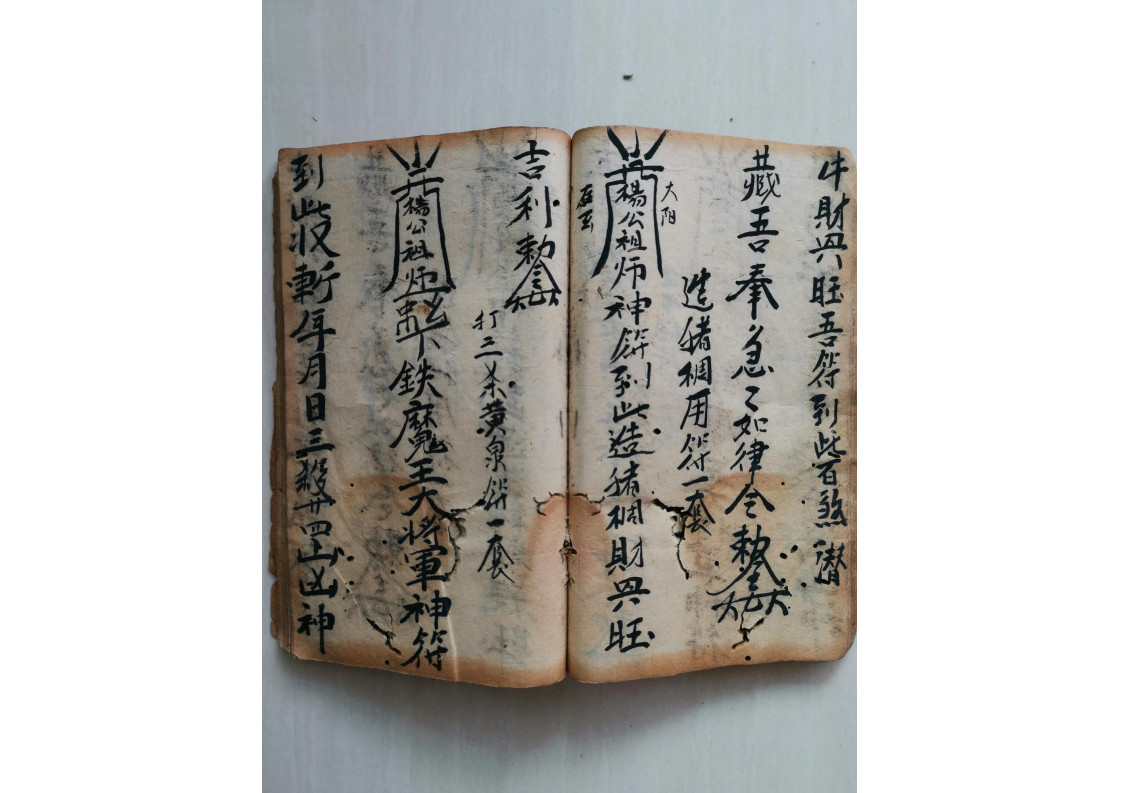 牛財興旺吾符到此百煞潛
藏吾奉急〻如律令勅
造猪稠用符一套
太阳
楊公祖师神符到此造猪稠財興旺
吉利勅
打三条黄泉符一套
楊公祖师下鉄魔王大将軍神符
到此收斬年月日三殺廿四山凶神